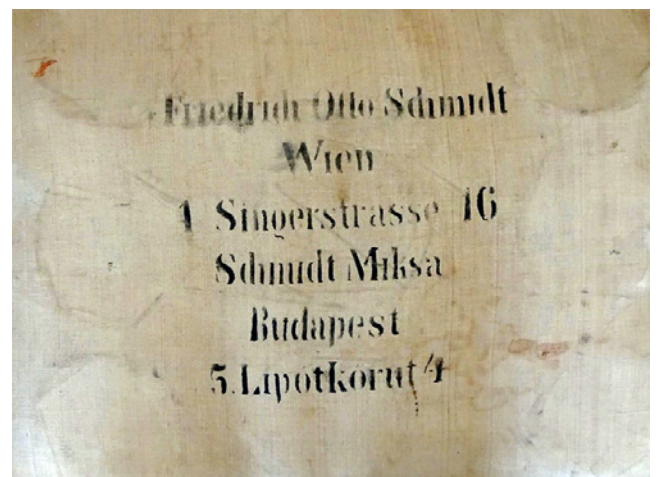 Friedrich Otto Schmidt
Wien
1 Singerstrasse 16
Schmidt Miksa
Budapest
5.Lipotkorut 4